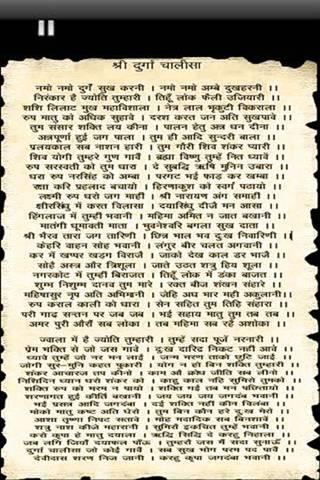 श्री दुर्गा चालीसा
नमो नमो दुर्गे सुख करनी । नमो नमो अम्बे दुखहरनी ।।
निरंकार है ज्योति तुम्हारी । तिहूँ लोक फैली उजियारी ।।
शशि लिलाट मुख महाविशाला । नेत्र लाल भृकुटी विकराला ।।
रुप मातु को अधिक सुहावे । दरश करत जन अति सुखपावे ।।
तुम संसार शक्ति लय कीना । पालन हेतु अन्न धन दीना ।
अन्नपूर्णा हुई जग पाला । तुम ही आदि सुन्दरी बाला ।।
प्रलयकाल सब नाशन हारी । तुम गौरी शिव शंकर प्यारी ।।
शिव योगी तुम्हरे गुण गावें । ब्रह्मा विष्णु तुम्हें नित ध्यावें ।।
रुप सरस्वती को तुम धारा । दे सुबद्धि ऋषि मुनिन उबारा ।
धरा रुप नरसिंह को अम्बा । परगट भई फाड़ कर खम्बा ।।
रक्षा करि प्रहलाद बचायो । हिरणाकुश को स्वर्ग पठायो ।
लक्ष्मी रुप धरो जग माहीं । श्री नारायण अंग समाहीं ।
क्षीरसिंधु में करत विलासा । दयासिंधु दीजै मन आसा ।।
हिंगलाज में तुम्हीं भवानी । महिमा अमित न जात बखानी ।।
मातंगी धूमावती माता । भुवनेश्वरि बगला सुख दाता ।।
श्री भैरव तारा जग तारिणी । छिन्न भाल भव दुःख निवारिणी ।
केहरि वाहन सोह भवानी । लंगुर बीर चलत अगवानी ।।
कर में खप्पर खड्ग विराजै । जाको देख काल डर भाजै ।।
सोहै अस्त्र और त्रिशूला । जाते उठत शत्रु हिय शूला ।
नगरकोट में तुम्हीं बिराजत । तिहूँ लोक में डंका बाजत ।
शुम्भ निशुम्भ दानव तुम मारे । रक्त बीज शंखन संहारे ।।
महिषासुर नृप अति अभिमानी । जेहि अघ भार मही अकुलानी।।
रुप कराल काली को धारा । सेन सहित तिम तिहि संहारा ।।
परी गाढ़ सन्तन पर जब जब । भई सहाय मातु तुम तब तब ।
अमर पुरी औरौं सब लोका । तब महिमा सब रहे अशोका ।
ज्वाला में है ज्योति तुम्हारी । तुम्हें सदा पूजें नरनारी ।।
प्रेम भक्ति से जो जस गावे । दुःख दारिद्र निकट नहीं आवे ।।
ध्यावे तुम्हें जो नर मन लाई । जन्म मरण ताको छुटि जाई ।
जोगी सुर-मुनि कहत पुकारी । योग न हो बिन शक्ति तुम्हारी ।।
शंकर आचारज तप कीनो । काम औ क्रोध जीति सब लीनो ।।
निशिदिन ध्यान धरो शंकर को । काहु काल नहि सुमिरो तुमको ।
शक्ति रुप को मरम न पायो । शक्ति गई तब मन पछितायो ।।
शरणागत हुई कीर्ति बखानी । जय जय जय जगदंब भवानी ।
भई प्रसन्न आदि जगदंबा । दई शक्ति नहिं कीन विलंबा ।।
मोको मातु कष्ट अति घेरो । तुम बिन कौन हरे दुःख मेरो ।।
आशा तृष्णा निपट सतावे । मोह मदादिक सब बिनशावें ।।
शत्रु नाश कीजै महारानी । सुमिरौं इकचित तुम्हें भवानी ।
करो कृपा हे मातु दयाला । ऋद्धि सिद्धि दे करहु निहाला ।
जब लगि जिऊँ दयाफल पाऊँ । तुम्हरो जस मैं सदा सुनाऊँ ।।
दुर्गा चालीसा जो कोई गावै । सब सुख भोग परम पद पावै ।।
देवीदास शरण निज जानी । करहु कृपा जगदंब भवानी ।।